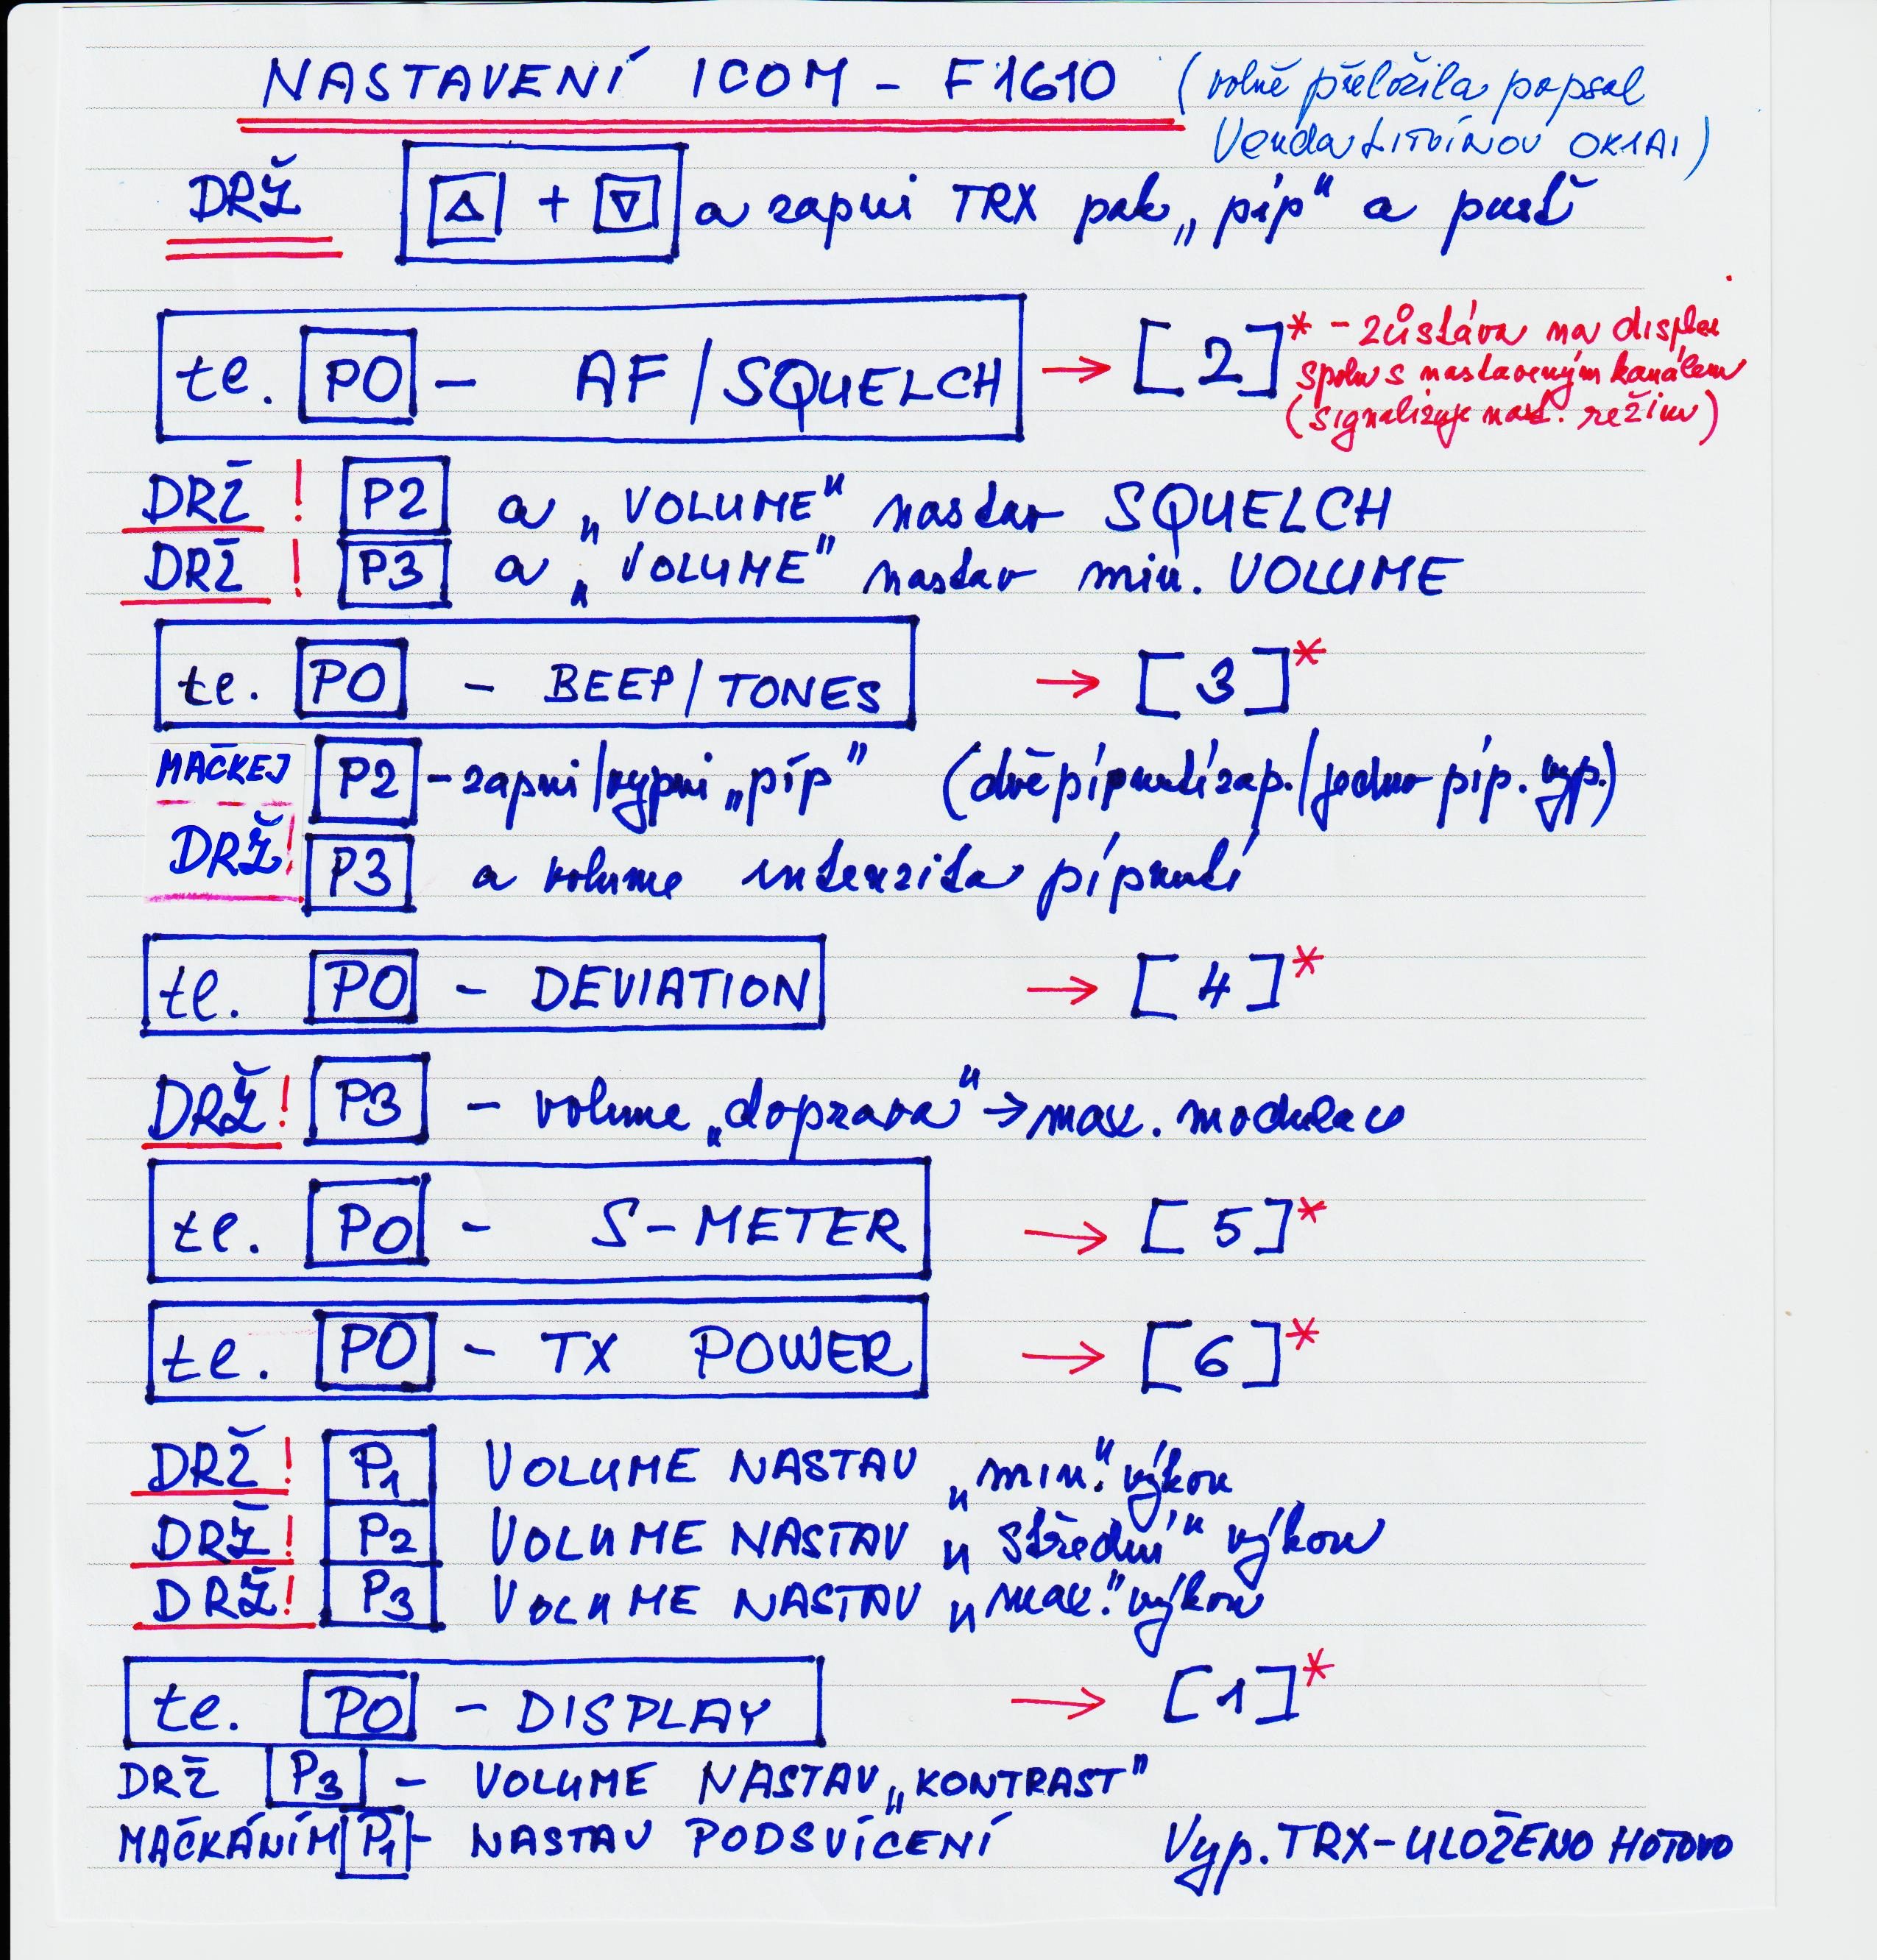 NASTAVENÍ ICOM - F1610 (volně přeložil a popsal
Venda LITVÍNOV OK1AI)
DRŽ △ + ▽ a zapni TRX pak „píp" a pusť
te. P0 - AF/SQUELCH → [2]* - zůstáva na displei
spolu s nastaveným kanálem
(signalizuje nast. režim)
DRŽ ! P2 a „VOLUME" nastav SQUELCH
DRŽ ! P3 a „VOLUME" nastav min. VOLUME
te. P0 - BEEP/TONES → [3]*
MAČKEJ P2 - zapni/vypni „píp" (dvě pípnutí zap./jedno píp. vyp.)
DRŽ! P3 a volume intenzita pípnutí
te. P0 - DEVIATION → [4]*
DRŽ! P3 - volume „doprava" → max. modulace
te. P0 - S-METER → [5]*
te. P0 - TX POWER → [6]*
DRŽ! P1 VOLUME NASTAV „min." výkon
DRŽ! P2 VOLUME NASTAV „střední" výkon
DRŽ! P3 VOLUME NASTAV „max." výkon
te. P0 - DISPLAY → [1]*
DRŽ P3 - VOLUME NASTAV „KONTRAST"
MAČKÁNÍM P1 - NASTAV PODSVÍCENÍ Vyp. TRX - ULOŽENO HOTOVO